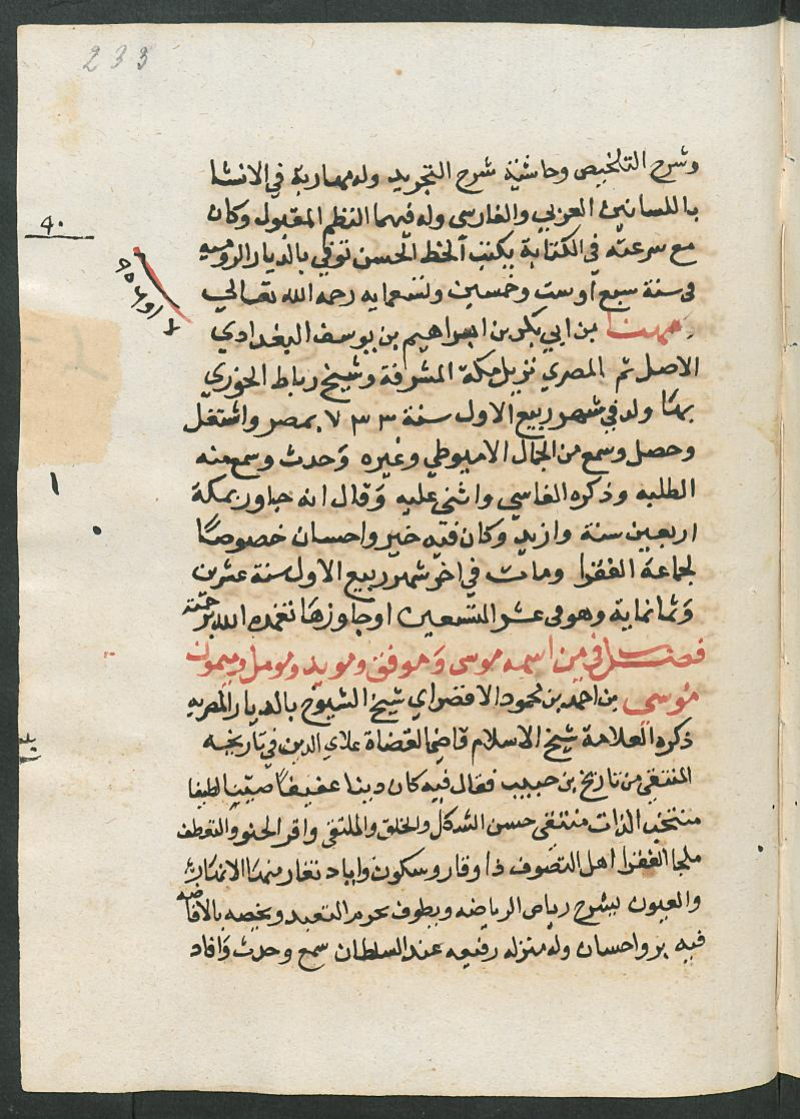 233
وشرح التلخيص وحاشية شرح التجريد وله مهارية في الانشا
باللسانين العربي والفارسي وله فيهما النظم المقبول وكان
٤٠
مع سرعته في الكتابة يكتب الخط الحسن توفي بالديار الروميه
في سنة سبع او ست وخمسين وتسعمايه رحمه الله تعالي
بن ابي بكر بن ابراهيم بن يوسف البغدادي
الاصل ثم المصري نزيل مكة المشرفة وشيخ رباط الخوزي
بها ولد في شهر ربيع الاول سنة ٧٣٣ بمصر واشتغل
وحصل وسمع من الجمال الاميوطي وغيره وحدث وسمع منه
الطلبه وذكره الفاسي واثني عليه وقال انه جاور بمكة
١
اربعين سنة وازيد وكان فيه خير واحسان خصوصًا
لجماعة الفقرا ومات في اخر شهر ربيع الاول سنة عشرين
وثمانماية وهو في عشر التسعين او جاوزها تغمده الله برحمته
فصل في من اسمه موسى وموفق ومويد ومومل وميمون
موسى بن احمد بن محمود الاقصراي شيخ الشيوخ بالديار المصريه
ذكره العلامة شيخ الاسلام قاضي القضاة علاي الدين في تاريخه
المنتقي من تاريخ بن حبيب فقال فيه كان دينا عفيفًا صيّنًا لطيفا
منتخب الذات منتقى حسن الشكل والخلق والملتقى وافر الحنو والتعطف
ملجا الفقرا اهل التصوف ذا وقار وسكون واياد تغار منها الانهار
والعيون يسرح رياض الرياضه ويطوف بحرم التعبد ويخصه بالافاضه
فيه بر واحسان وله منزله رفيعه عند السلطان سمع وحدث وافاد